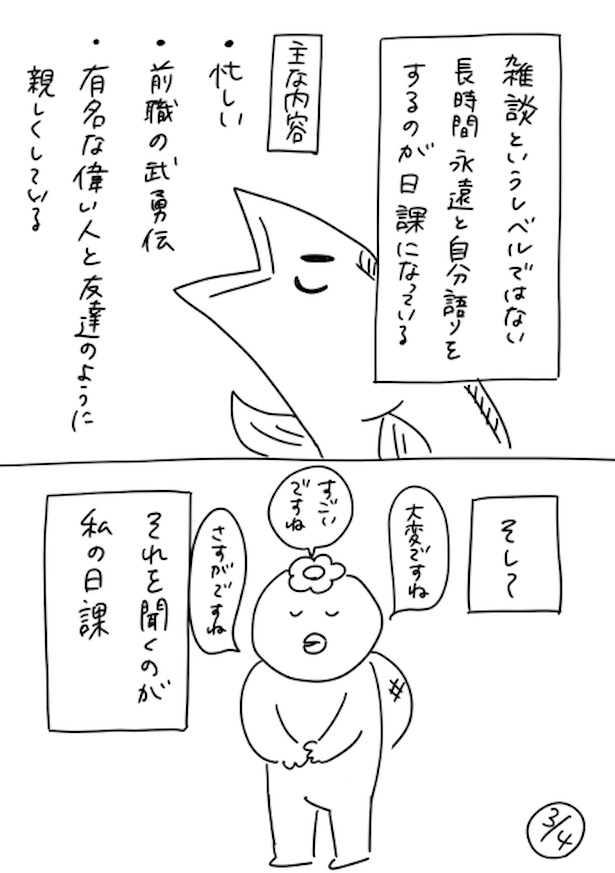 雑談というレベルではない
長時間永遠と自分語りを
するのが日課になっている
主な内容
・忙しい
・前職の武勇伝
・有名な偉い人と友達のように
親しくしている
そして
大変ですね
すごい
ですね
さすがですね
それを聞くのが
私の日課
3/4